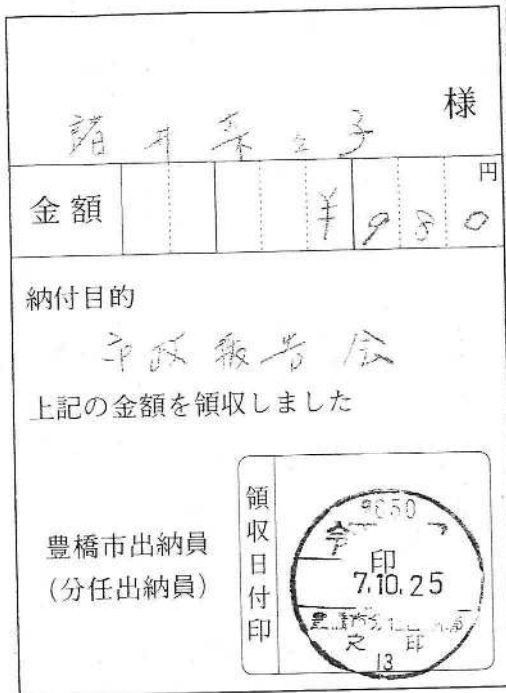 諸井菜々子 様
金額 ¥980円
納付目的
市政報告会
上記の金額を領収しました
豊橋市出納員
(分任出納員)
領収日付印
印
7.10.25
13